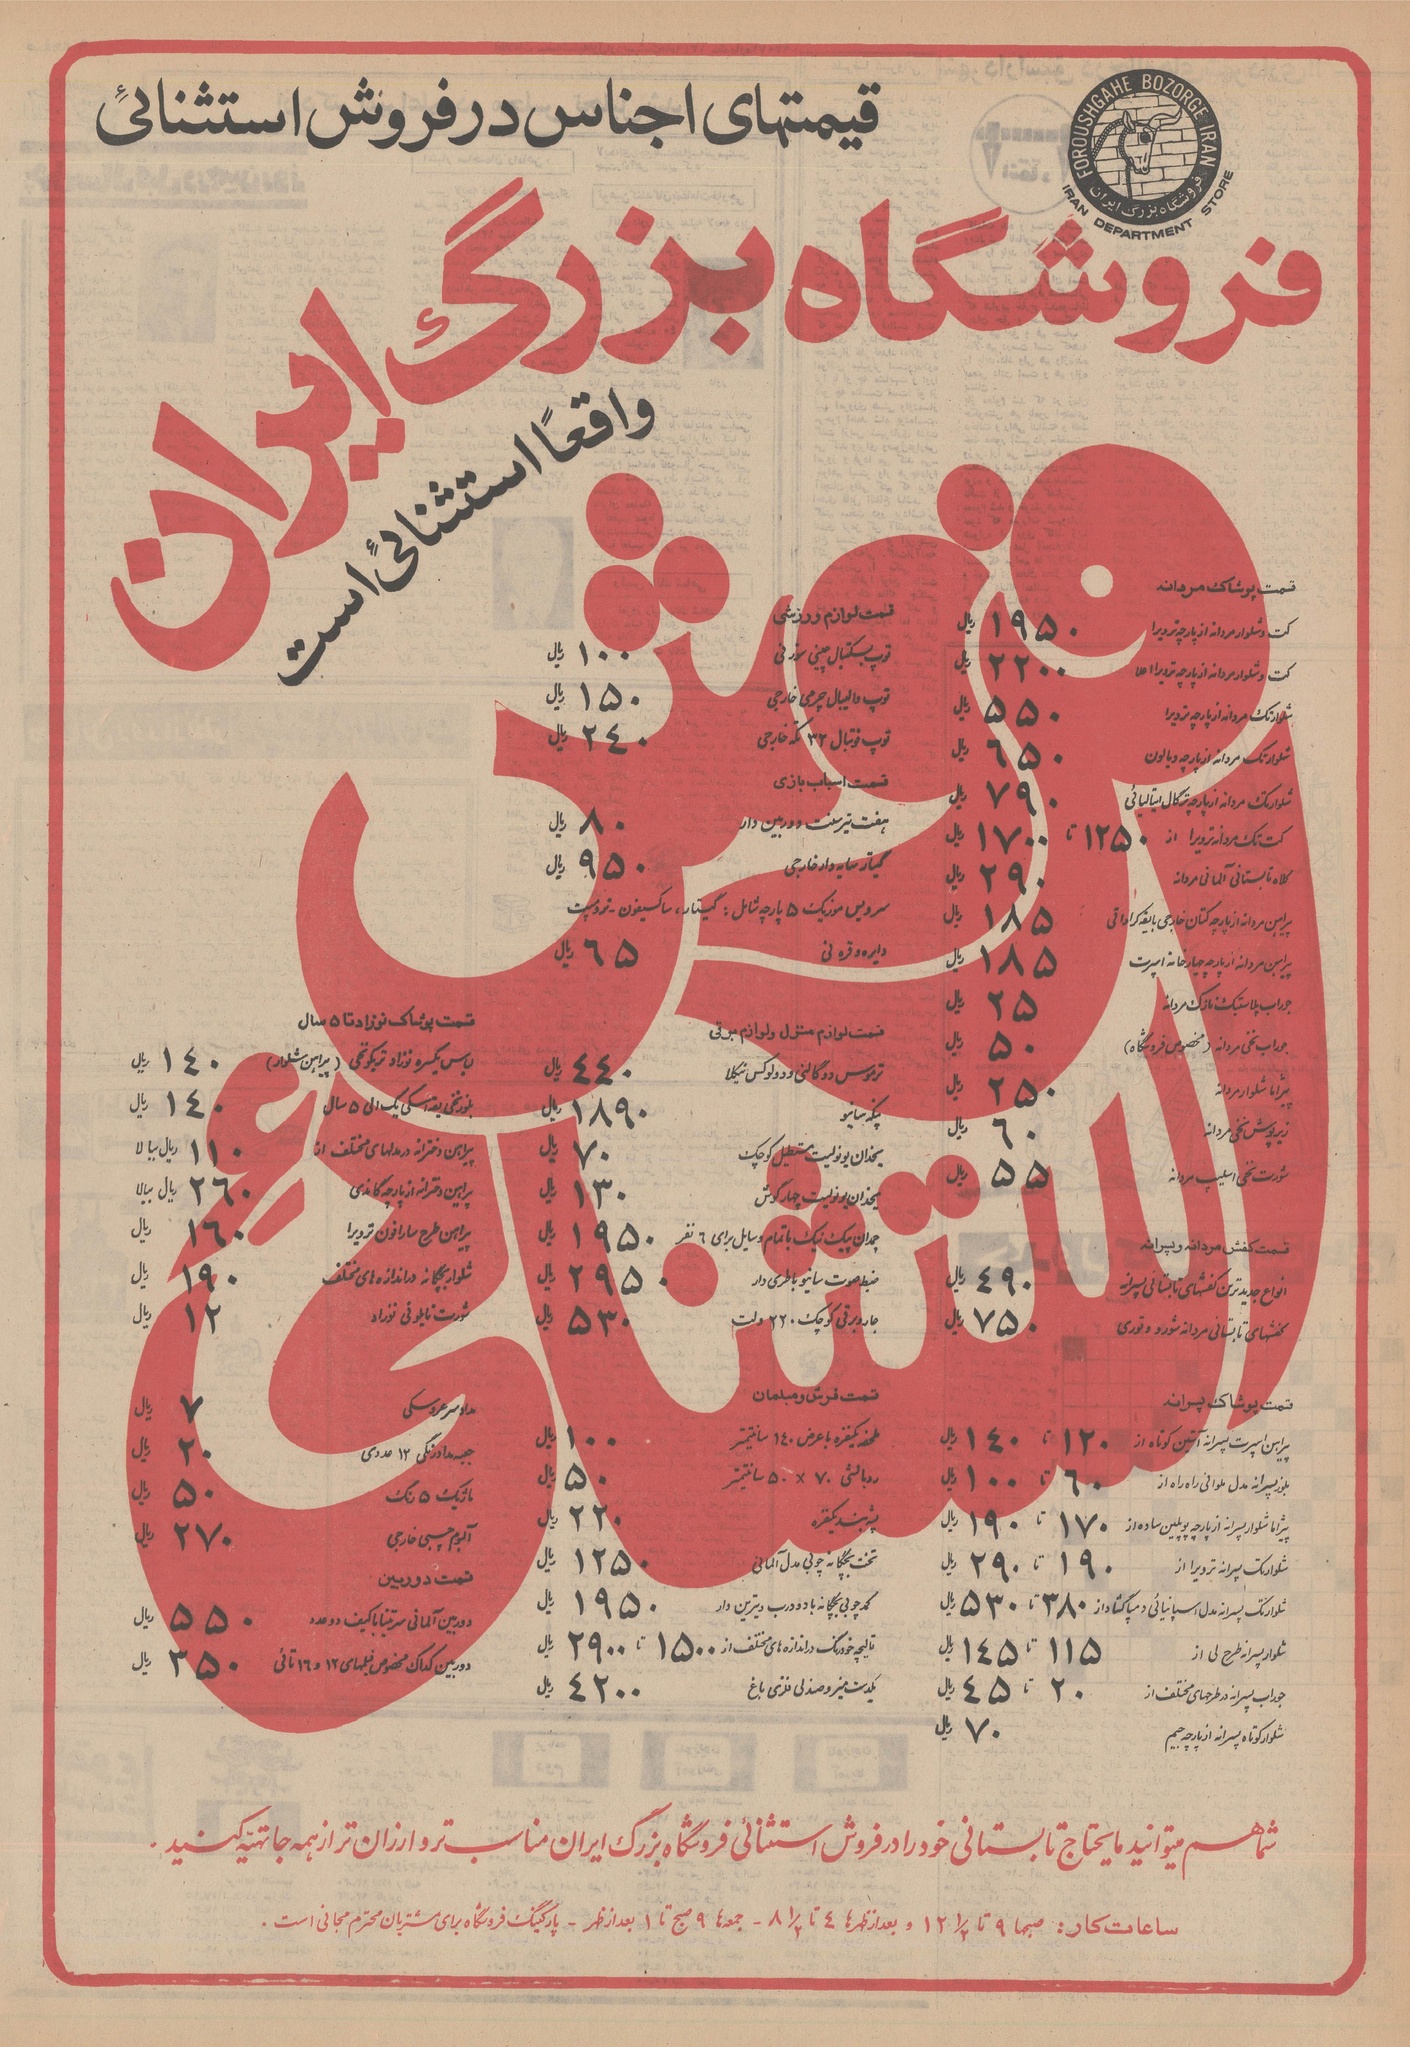 قیمتهای اجناس در فروش استثنائی
FOROUSHGAHE BOZORGE IRAN
فروشگاه بزرگ ایران
IRAN DEPARTMENT STORE
فروشگاه بزرگ ایران
واقعاً استثنائی است
فروش استثنائی
قیمت پوشاک مردانه
کت و شلوار مردانه از پارچه ترویرا ۱۹۵۰ ریال
کت و شلوار مردانه از پارچه ترویرا اعلا ۲۲۰۰ ریال
شلوار تک مردانه از پارچه ترویرا ۵۵۰ ریال
شلوار تک مردانه از پارچه ویالون ۶۵۰ ریال
شلوار تک مردانه از پارچه ترگال ایتالیائی ۷۹۰ ریال
کت تک مردانه ترویرا از ۱۲۵۰ تا ۱۷۰۰ ریال
کلاه تابستانی آلمانی مردانه ۲۹۰ ریال
پیراهن مردانه از پارچه کتان خارجی با یقه کراواتی ۱۸۵ ریال
پیراهن مردانه از پارچه چهارخانه اسپرت ۱۸۵ ریال
جوراب پلاستیک نازک مردانه ۲۵ ریال
جوراب نخی مردانه (مخصوص فروشگاه) ۵۰ ریال
پیژاما شلوار مردانه ۲۵۰ ریال
زیرپوش نخی مردانه ۶۰ ریال
شورت نخی اسلیپ مردانه ۵۵ ریال
قیمت کفش مردانه و پسرانه
انواع جدیدترین کفشهای تابستانی پسرانه ۴۹۰ ریال
کفشهای تابستانی مردانه شورو و توری ۷۵۰ ریال
قیمت پوشاک پسرانه
پیراهن اسپرت پسرانه آستین کوتاه از ۱۲۰ تا ۱۴۰ ریال
بلوز پسرانه مدل ملوانی راه راه از ۶۰ تا ۱۰۰ ریال
پیژاما شلوار پسرانه از پارچه پوپلین ساده از ۱۷۰ تا ۱۹۰ ریال
شلوار تک پسرانه ترویرا از ۱۹۰ تا ۲۹۰ ریال
شلوار تک پسرانه مدل اسپانیائی دمپا گشاد از ۳۸۰ تا ۵۳۰ ریال
شلوار پسرانه طرح لی از ۱۱۵ تا ۱۴۵ ریال
جوراب پسرانه در طرحهای مختلف از ۲۰ تا ۴۵ ریال
شلوار کوتاه پسرانه از پارچه جیم ۷۰ ریال
قیمت لوازم ورزشی
توپ بسکتبال چینی سوزنی ۱۰۰ ریال
توپ والیبال چرمی خارجی ۱۵۰ ریال
توپ فوتبال ۳۲ تکه خارجی ۲۴۰ ریال
قیمت اسباب بازی
هفت تیر سنت دوربین دار ۸۰ ریال
گیتار سایه دار خارجی ۹۵۰ ریال
سرویس موزیک ۵ پارچه شامل: گیتار، ساکسیفون - ترومپت
دایره و قره نی ۶۵ ریال
قیمت لوازم منزل و لوازم برقی
ترموس دو گالنی و دولوکس نیکلا ۴۴۰ ریال
پنکه سانیو ۱۸۹۰ ریال
یخدان یونولیت مستطیل کوچک ۷۰ ریال
یخدان یونولیت چهارگوش ۱۳۰ ریال
چمدان پیک نیک با تمام وسایل برای ۶ نفر ۱۹۵۰ ریال
ضبط صوت سانیو باطری دار ۲۹۵۰ ریال
جاروبرقی کوچک ۲۲۰ ولت ۵۳۰ ریال
قیمت فرش و مبلمان
ملحفه یکنفره با عرض ۱۴۰ سانتیمتر ۱۰۰ ریال
روبالشی ۷۰ × ۵۰ سانتیمتر ۵۰ ریال
پشه بند یکنفره ۲۲۰ ریال
تخت بچگانه چوبی مدل آلمانی ۱۲۵۰ ریال
کمد چوبی بچگانه با دو درب ویترین دار ۱۹۵۰ ریال
قالیچه خودرنگ در اندازه های مختلف از ۱۵۰۰ تا ۲۹۰۰ ریال
یکدست میز و صندلی فلزی باغ ۴۲۰۰ ریال
قیمت پوشاک نوزاد تا ۵ سال
لباس یکسره نوزاد تریکو نخی (پیراهن شلوار) ۱۴۰ ریال
بلوز نخی یقه اسکی یک الی ۵ سال ۱۴۰ ریال
پیراهن دخترانه در مدلهای مختلف از ۱۱۰ ریال ببالا
پیراهن دخترانه از پارچه گاندی ۲۶۰ ریال ببالا
پیراهن طرح سارافون ترویرا ۱۶۰ ریال
شلوار بچگانه در اندازه های مختلف ۱۹۰ ریال
شورت نایلونی نوزاد ۱۲ ریال
مداد سر عروسکی ۷ ریال
جعبه مداد رنگی ۱۲ عددی ۲۰ ریال
ماژیک ۵ رنگ ۵۰ ریال
آلبوم چسبی خارجی ۲۷۰ ریال
قیمت دوربین
دوربین آلمانی سرتینا با کیف دو عدد ۵۵۰ ریال
دوربین کداک مخصوص فیلمهای ۱۲ و ۱۶ تائی ۳۵۰ ریال
شما هم میتوانید مایحتاج تابستانی خود را در فروش استثنائی فروشگاه بزرگ ایران مناسب تر و ارزان تر از همه جا تهیه کنید.
ساعات کار: صبحها ۹ تا ۱۲ ۱/۲ و بعدازظهرها ۴ تا ۸ ۱/۲ - جمعه ها ۹ صبح تا ۱ بعدازظهر - پارکینگ فروشگاه برای مشتریان محترم مجانی است.